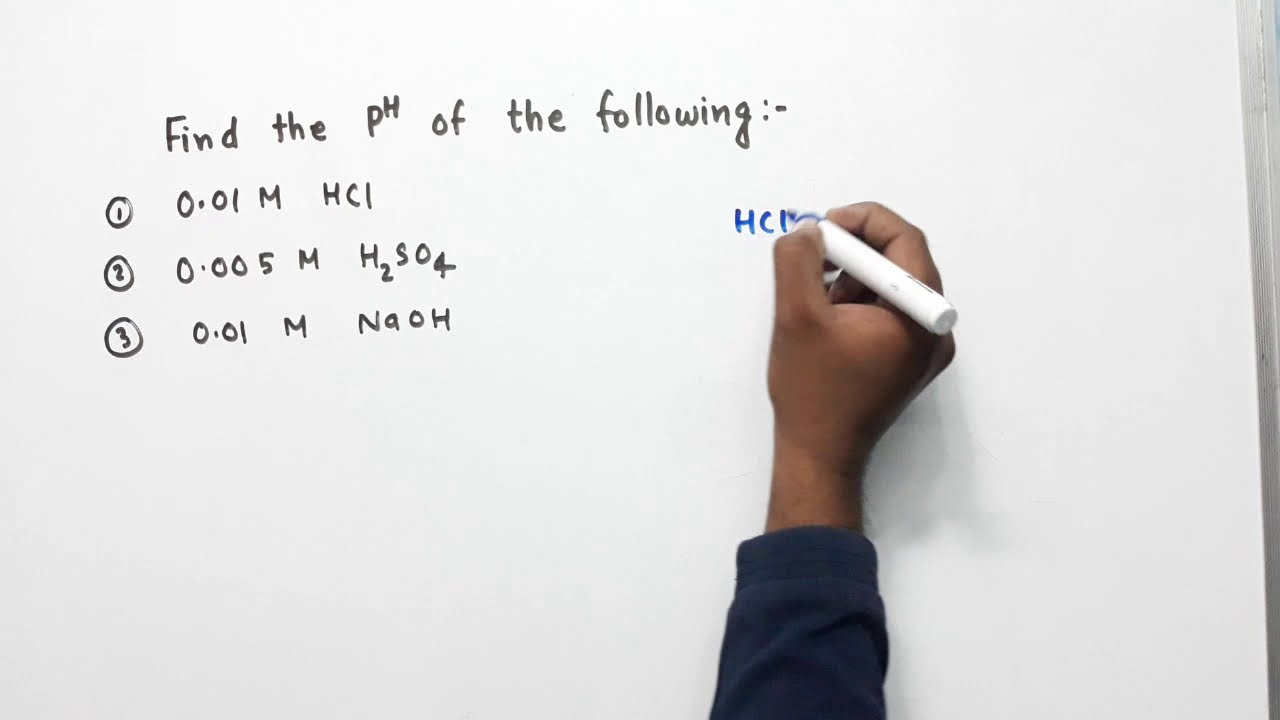 Find the pH of the following:-
① 0.01 M HCl
② 0.005 M H₂SO₄
③ 0.01 M NaOH
HCl